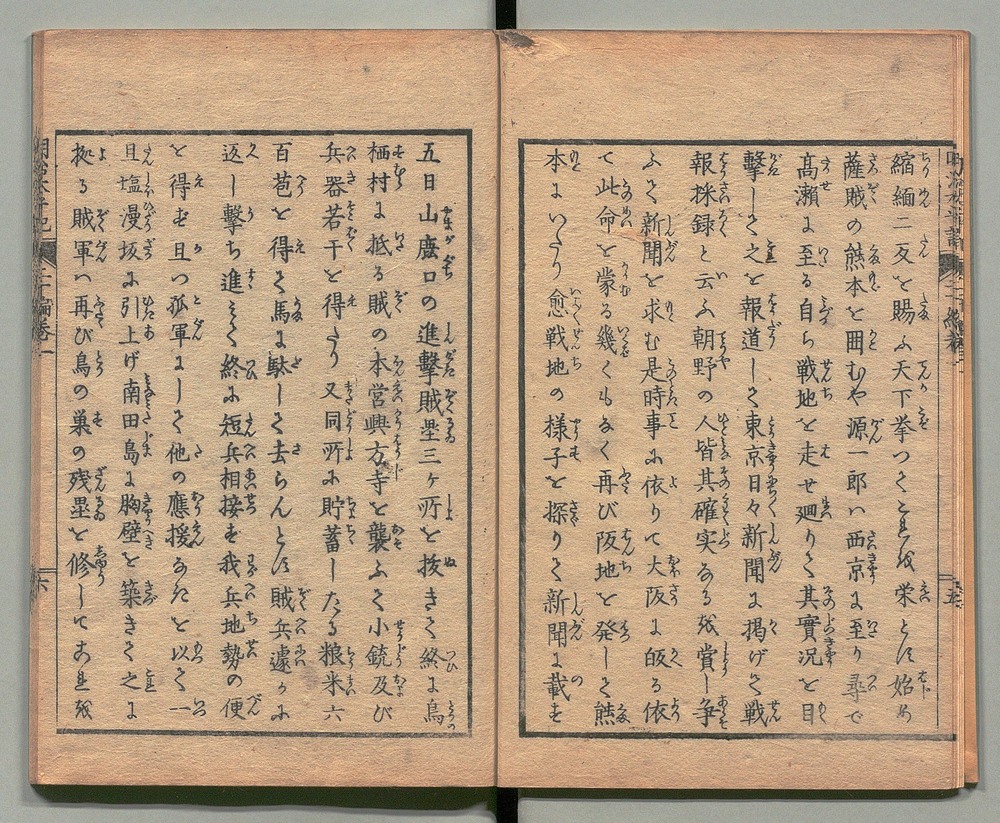 縮緬二反を賜ふ天下挙つてこれを栄とす始め
薩賊の熊本を囲むや源一郎ハ西京に至り尋で
高瀬に至る自ら戦地を走せ廻りて其實况を目
擊して之を報道して東京日々新聞に掲げて戦
報採録と云ふ朝野の人皆其確実なるを賞し争
ふて新聞を求む是時事に依りて大阪に皈る依
て此命を蒙る幾くもなく再び阪地を発して熊
本にいたり愈戦地の様子を探りて新聞に載す
五日山鹿口の進擊賊塁三ヶ所を抜きて終に鳥
栖村に抵る賊の本営興方寺を襲ふて小銃及び
兵器若干を得たり又同所に貯蓄したる粮米六
百苞を得て馬に駄して去らんとす賊兵遽かに
返し擊ち進ミて終に短兵相接す我兵地勢の便
を得ず且つ孤軍にして他の應援なきを以て一
旦塩漫坂に引上げ南田島に胸壁を築きて之に
拠る賊軍ハ再び鳥の巣の残塁を修してこれを
二十編巻一
六
五